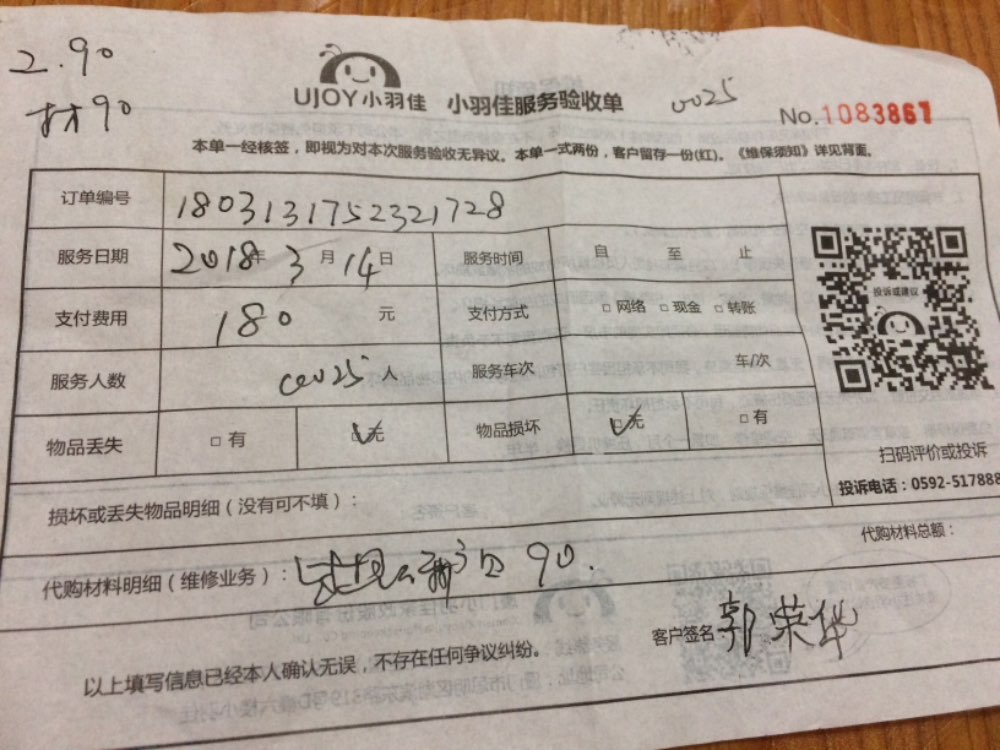 2.90
材90
UJOY小羽佳 小羽佳服务验收单
0025
No.1083867
本单一经核签，即视为对本次服务验收无异议。本单一式两份，客户留存一份(红)。《维保须知》详见背面。
订单编号 1803131752321728
服务日期 2018年3月14日 服务时间 自 至 止
支付费用 180 元 支付方式 □网络 □现金 □转账
服务人数 0025人 服务车次 车/次
物品丢失 □有 □无 物品损坏 □无 □有
投诉或建议
扫码评价或投诉
投诉电话：0592-517888
损坏或丢失物品明细（没有可不填）：
代购材料总额：
代购材料明细（维修业务）： 90.
客户签名 郭荣华
以上填写信息已经本人确认无误，不存在任何争议纠纷。